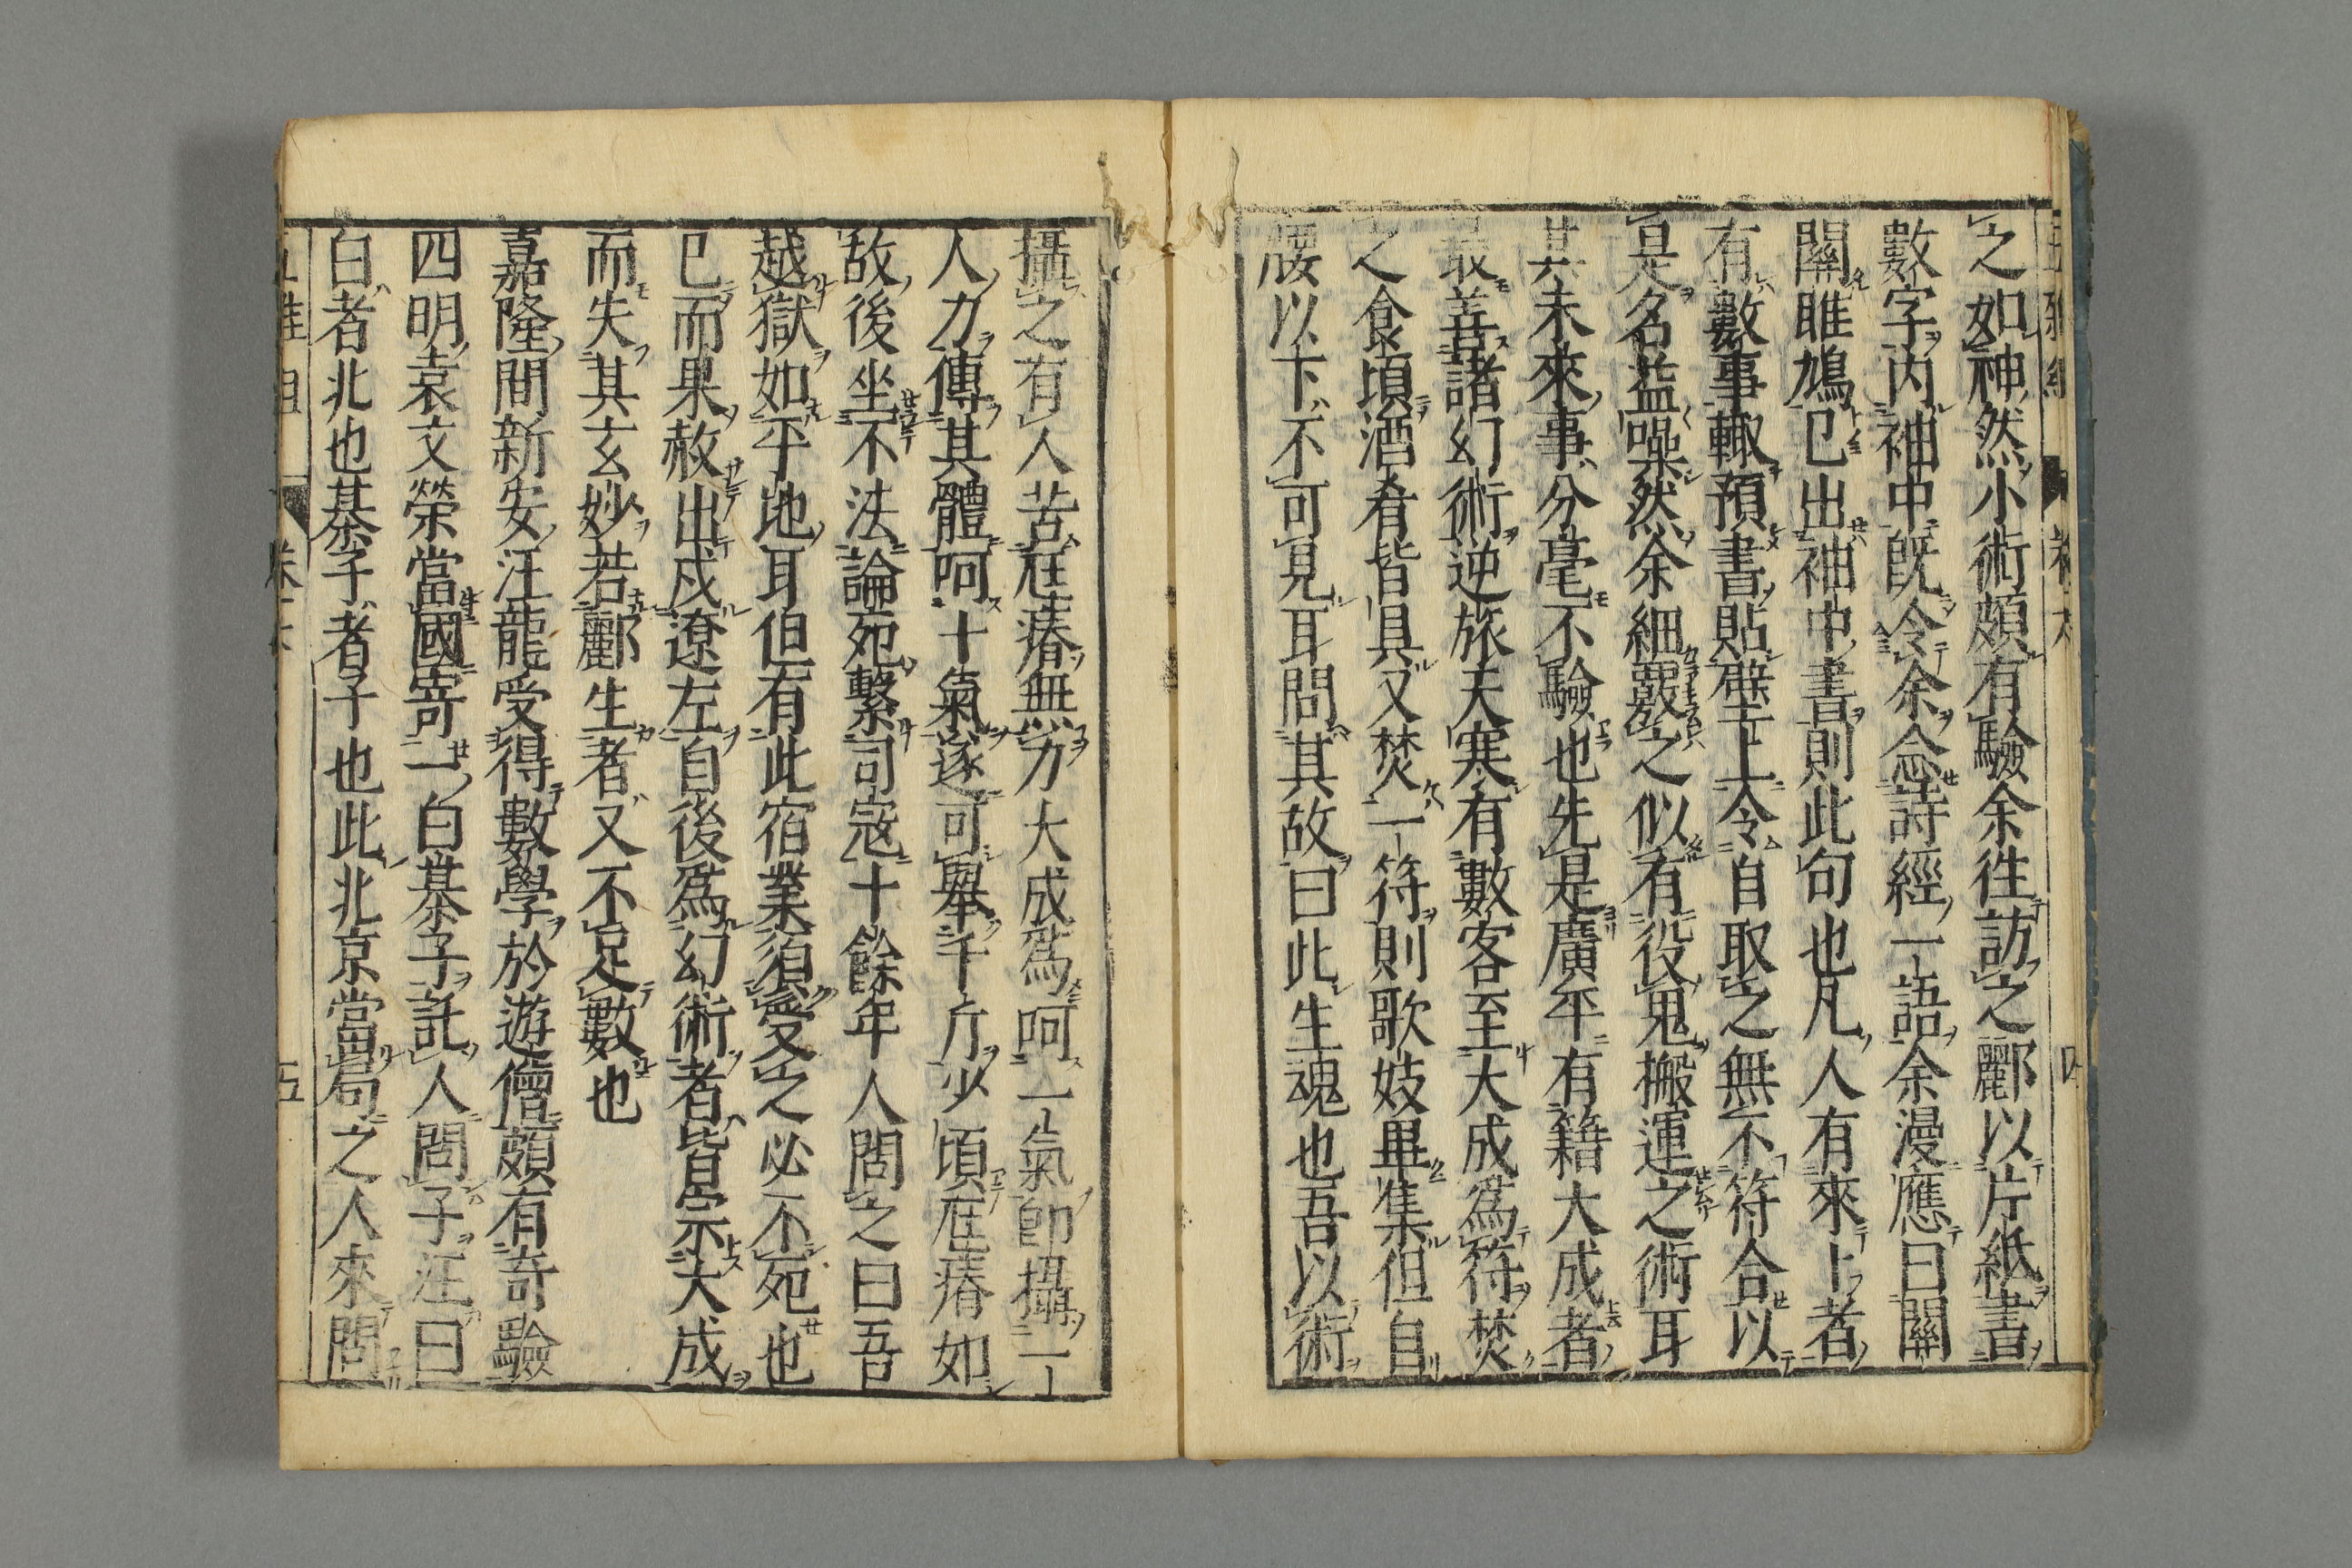 之如神然小術頗有驗余徃訪之酈以片紙書
數字内袖中既令余念詩經一語余漫應曰關
關雎鳩已出袖中書則此句也凡人有來卜者
有數事輙預書貼壁上令自取之無不符合以
是名益噪然余細覈之似有役鬼搬運之術耳
其未來事分毫不驗也先是廣平有籍大成者
最善諸幻術逆旅天寒有數客至大成爲符焚
之食頃酒肴皆具又焚一符則歌妓畢集但自
腰以下不可見耳問其故曰此生魂也吾以術
攝之有人苦尫瘠無力大成爲呵一氣卽攝一
人力傳其體呵十氣遂可舉千斤少頃尫瘠如
故後坐不法論死繫司寇十餘年人問之曰吾
越獄如平地耳但有此宿業須受之必不死也
已而果赦出戍遼左自後爲幻術者皆宗大成
而失其玄妙若酈生者又不足數也
嘉隆間新安汪龍受得數學於遊僧頗有奇驗
四明袁文榮當國寄一白棊子託人問子汪曰
白者北也棊子者子也此北京當局之人來問
卷六
五